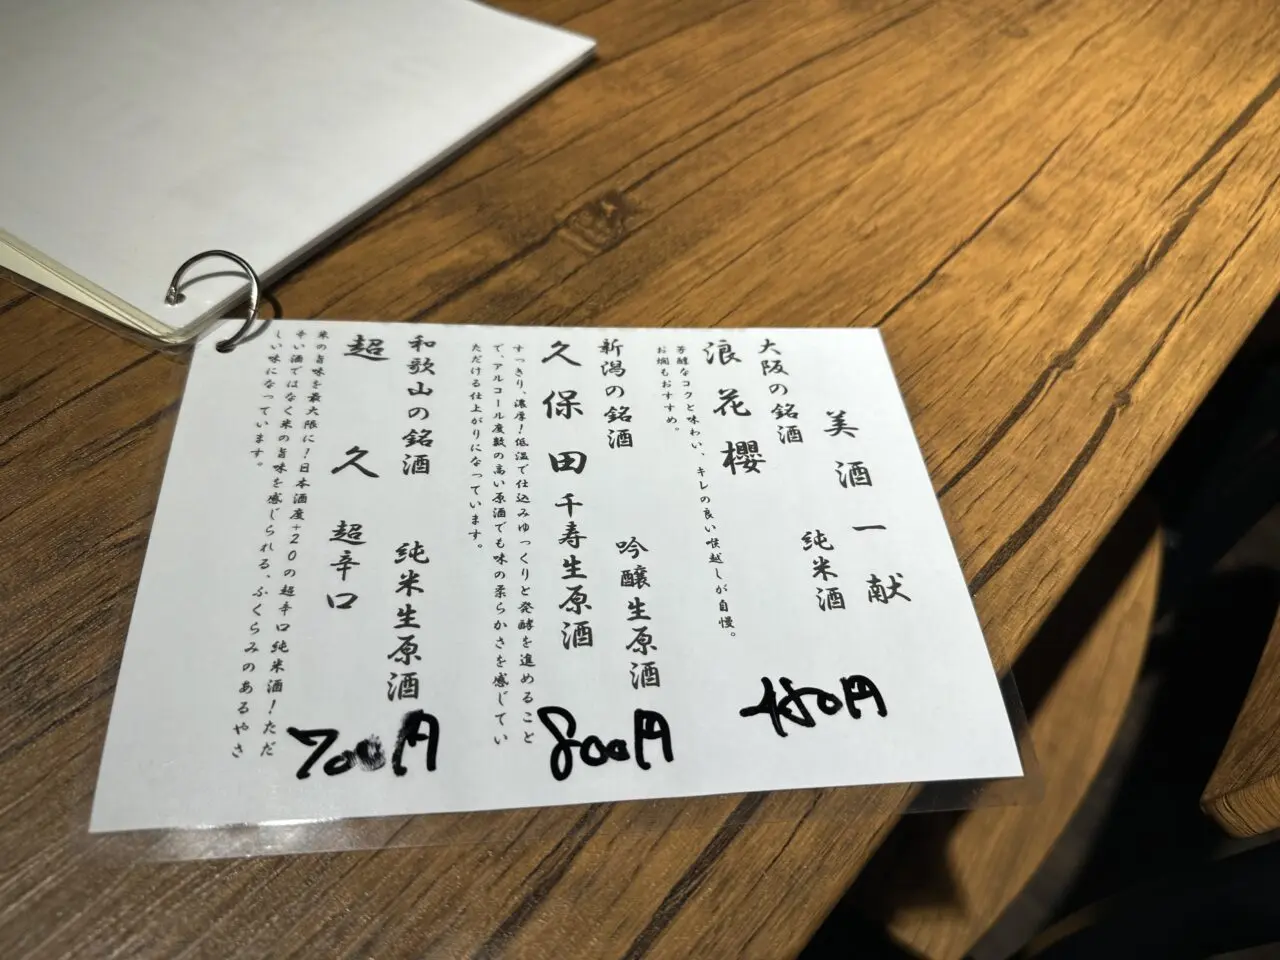 美酒一献
大阪の銘酒 純米酒
浪花櫻
芳醇なコクと味わい、キレの良い喉越しが自慢。
お燗もおすすめ。
450円
新潟の銘酒 吟醸生原酒
久保田千寿生原酒
すっきり、濃厚!低温で仕込みゆっくりと発酵を進めること
で、アルコール度数の高い原酒でも味の柔らかさを感じてい
ただける仕上がりになっています。
800円
和歌山の銘酒 純米生原酒
超久 超辛口
米の旨味を最大限に!日本酒度+20の超辛口純米酒!ただ
辛い酒ではなく米の旨味を感じられる、ふくらみのあるやさ
しい味になっています。
700円